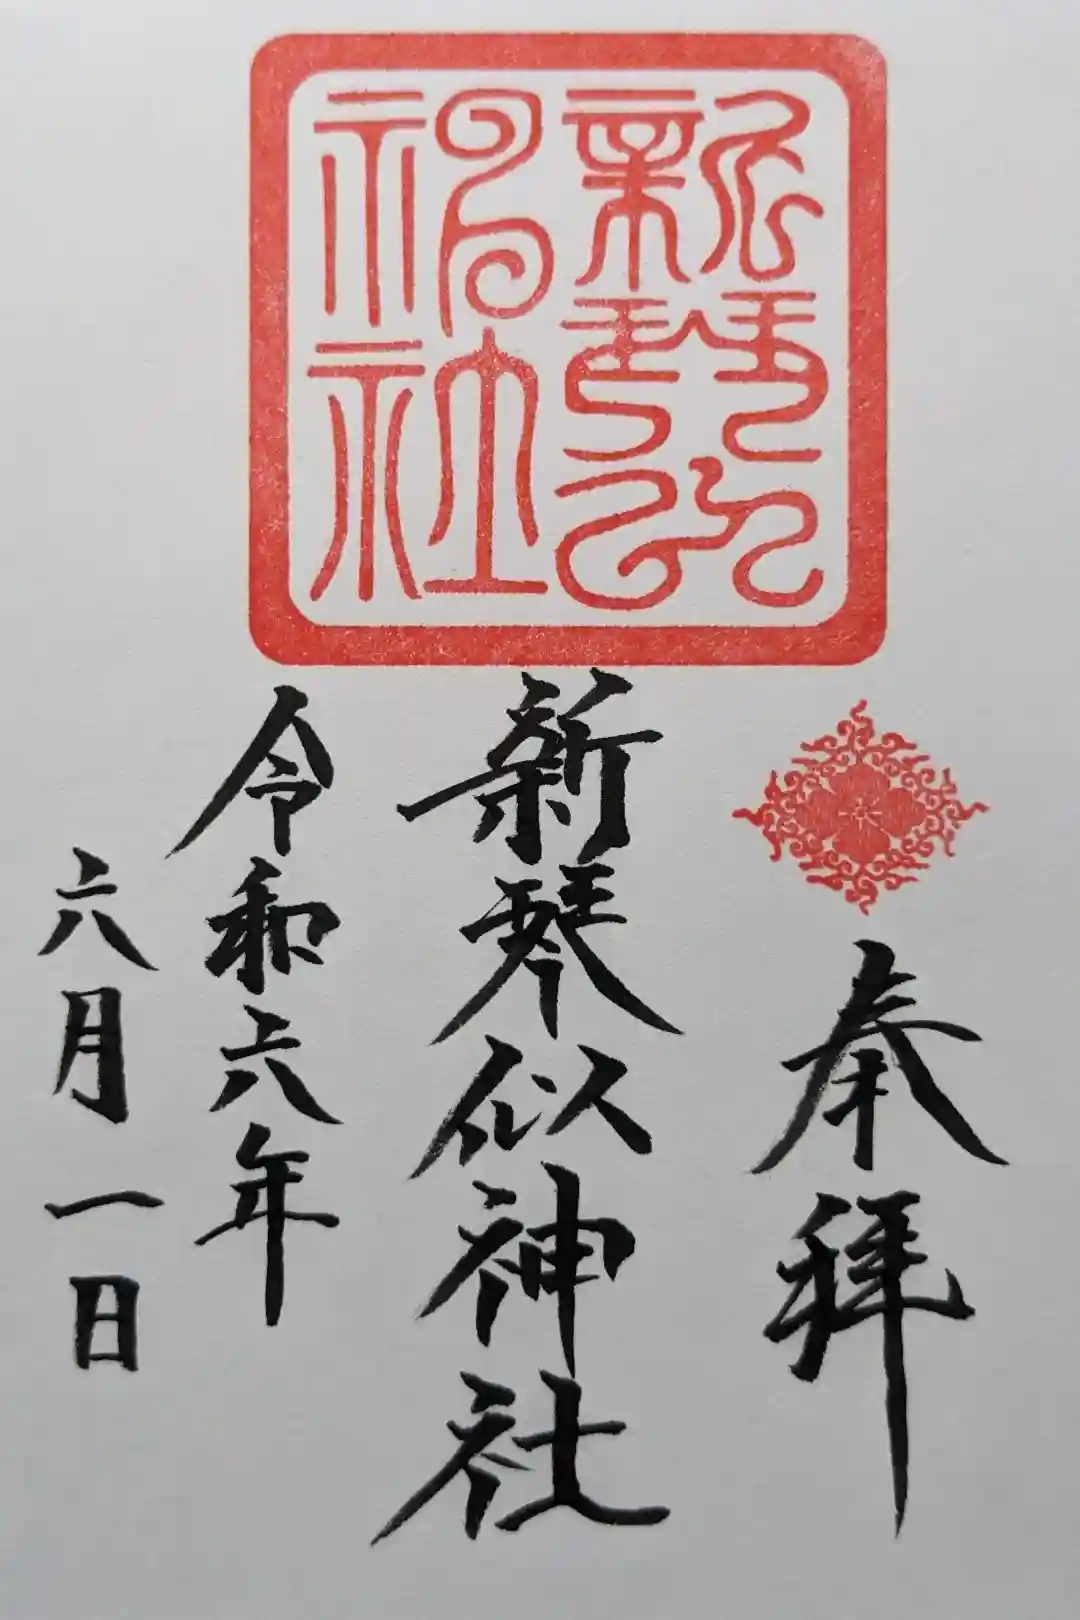 新琴似神社
奉拝
新琴似神社
令和六年
六月一日